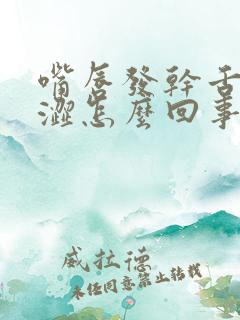 嘴唇發幹舌
澀怎麼回事
威拉德
未经同意禁止转载